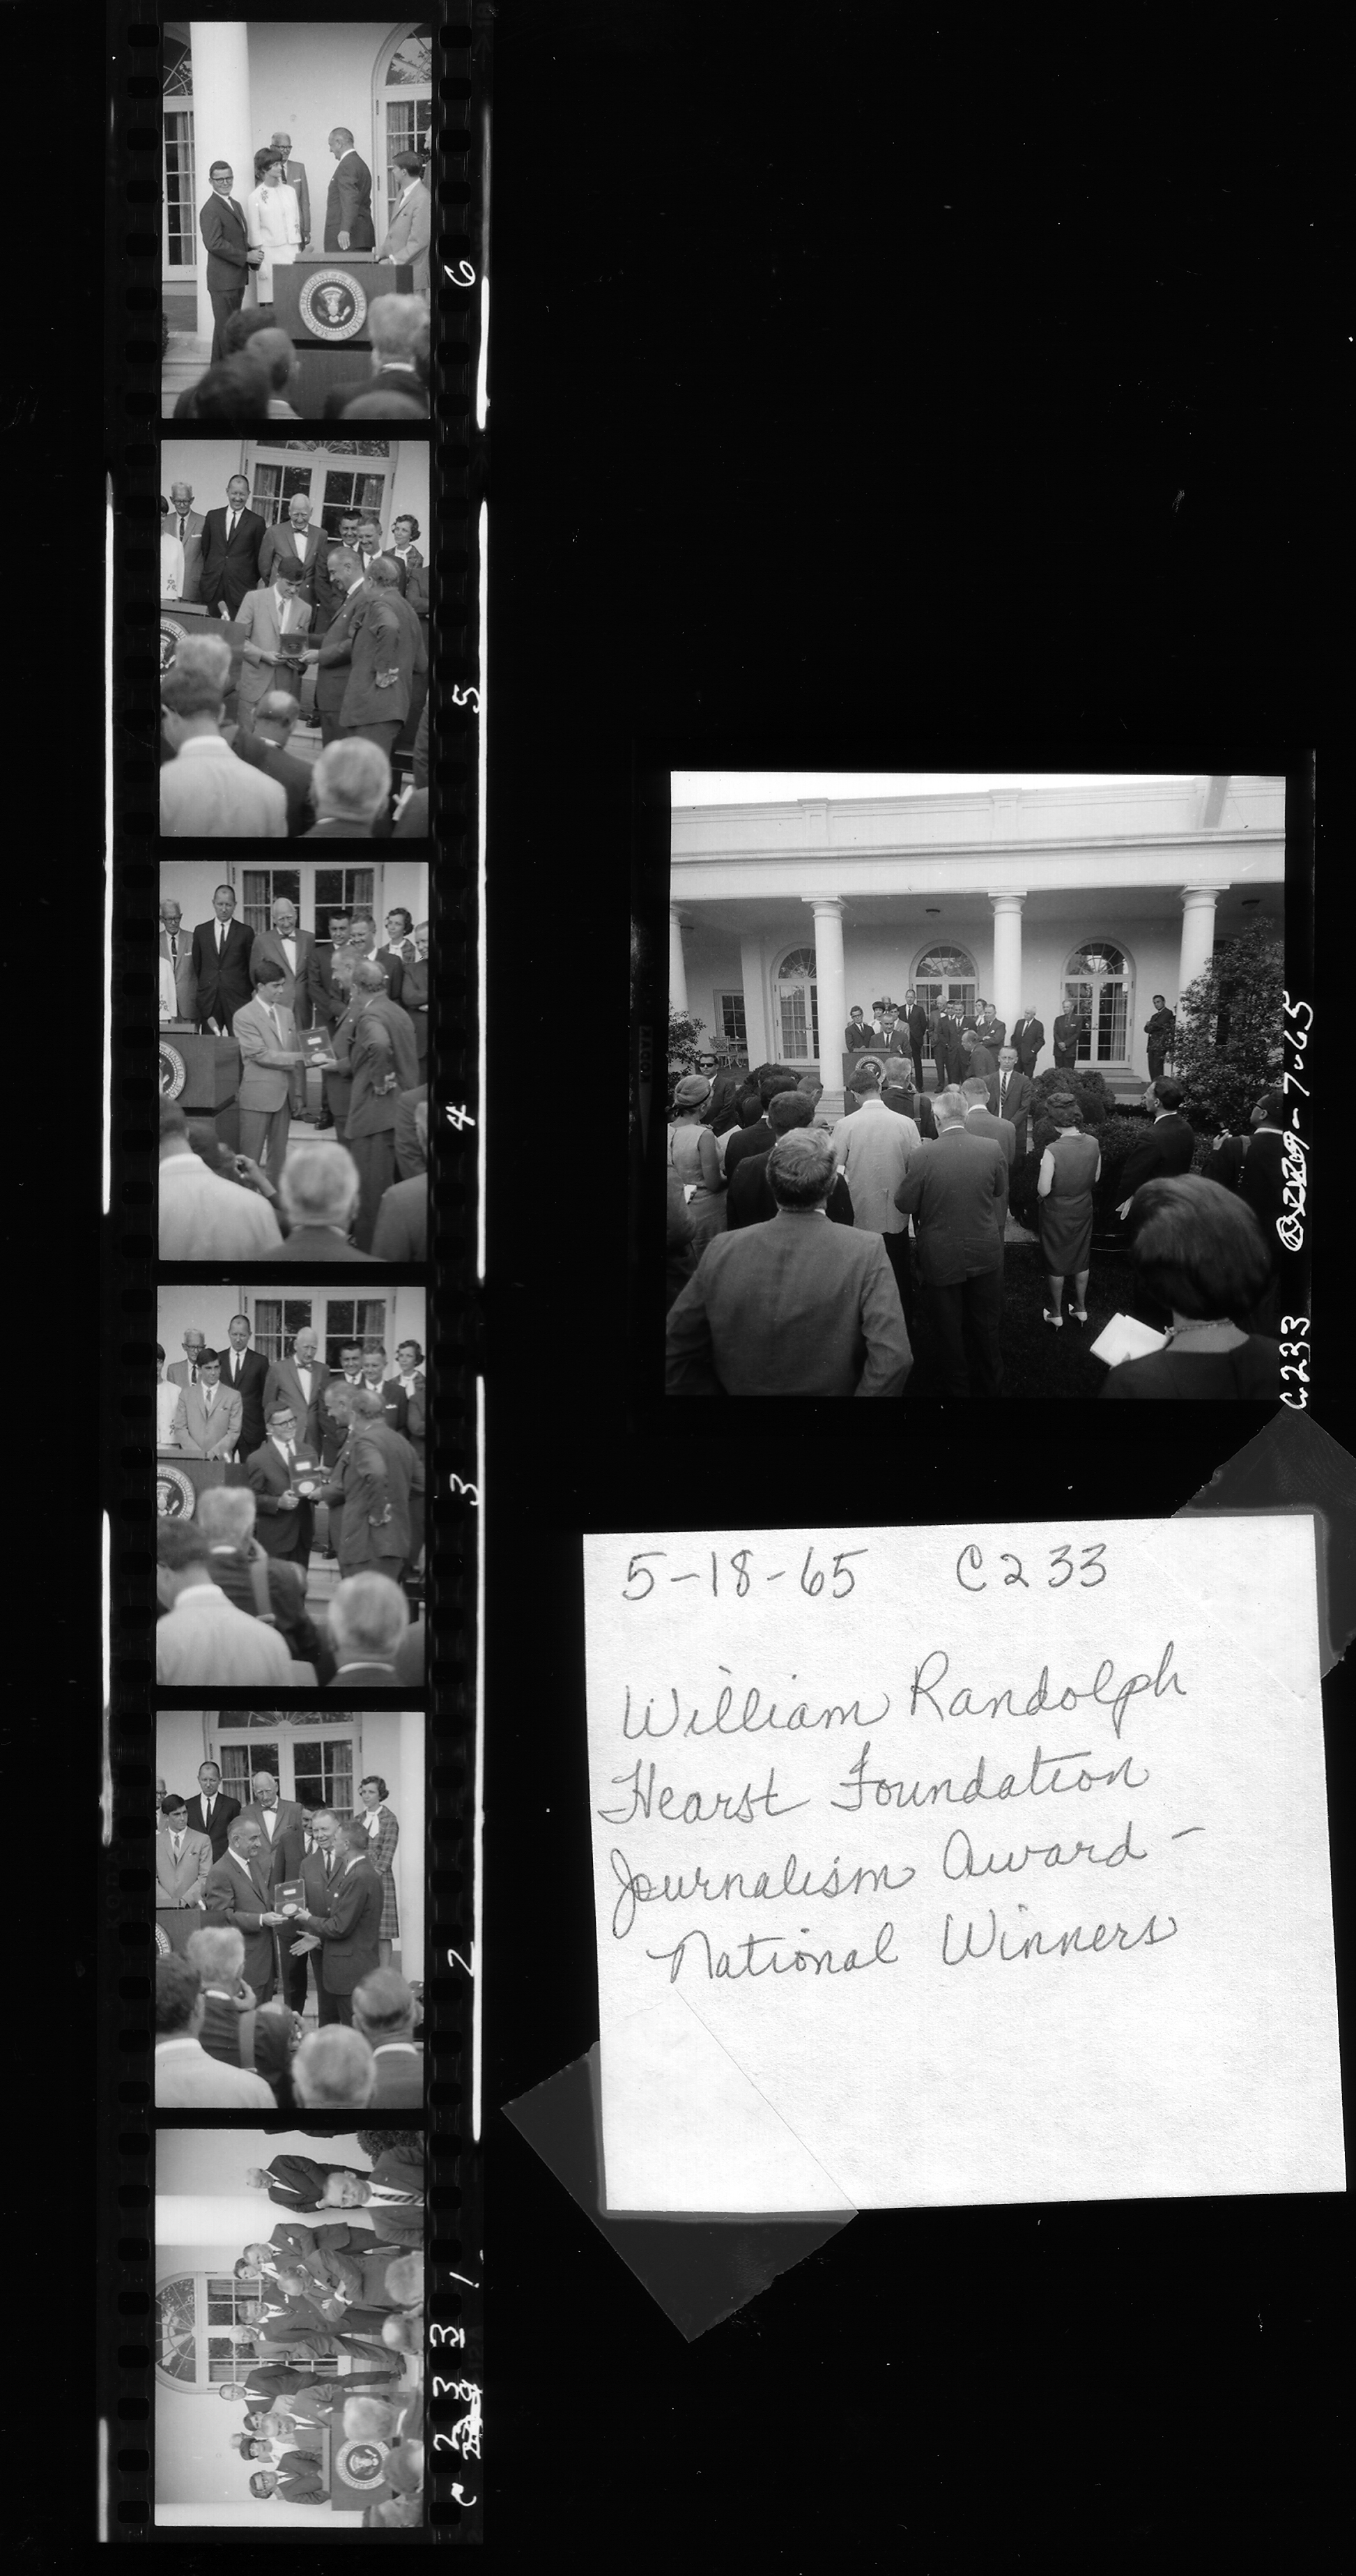 6
5
4
3
2
1
C233
C233 7-65
5-18-65 C233
William Randolph
Hearst Foundation
Journalism Award -
National Winners